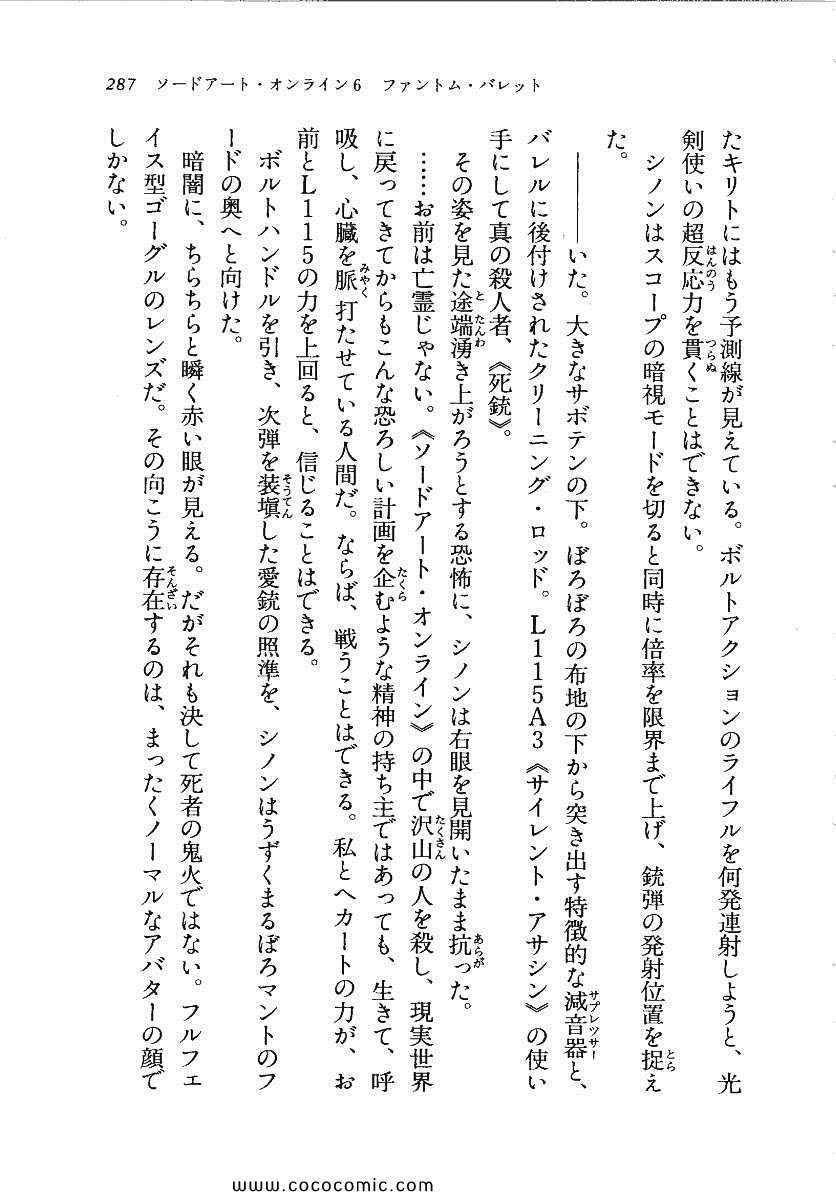 287　ソードアート・オンライン6　ファントム・バレット
たキリトにはもう予測線が見えている。ボルトアクションのライフルを何発連射しようと、光
剣使いの超反応力を貫くことはできない。
　シノンはスコープの暗視モードを切ると同時に倍率を限界まで上げ、銃弾の発射位置を捉え
た。
　――――いた。大きなサボテンの下。ぼろぼろの布地の下から突き出す特徴的な減音器と、
バレルに後付けされたクリーニング・ロッド。L115A3《サイレント・アサシン》の使い
手にして真の殺人者、《死銃》。
　その姿を見た途端湧き上がろうとする恐怖に、シノンは右眼を見開いたまま抗った。
　……お前は亡霊じゃない。《ソードアート・オンライン》の中で沢山の人を殺し、現実世界
に戻ってきてからもこんな恐ろしい計画を企むような精神の持ち主ではあっても、生きて、呼
吸し、心臓を脈打たせている人間だ。ならば、戦うことはできる。私とヘカートの力が、お
前とL115の力を上回ると、信じることはできる。
　ボルトハンドルを引き、次弾を装塡した愛銃の照準を、シノンはうずくまるぼろマントのフ
ードの奥へと向けた。
　暗闇に、ちらちらと瞬く赤い眼が見える。だがそれも決して死者の鬼火ではない。フルフェ
イス型ゴーグルのレンズだ。その向こうに存在するのは、まったくノーマルなアバターの顔で
しかない。
www.cococomic.com